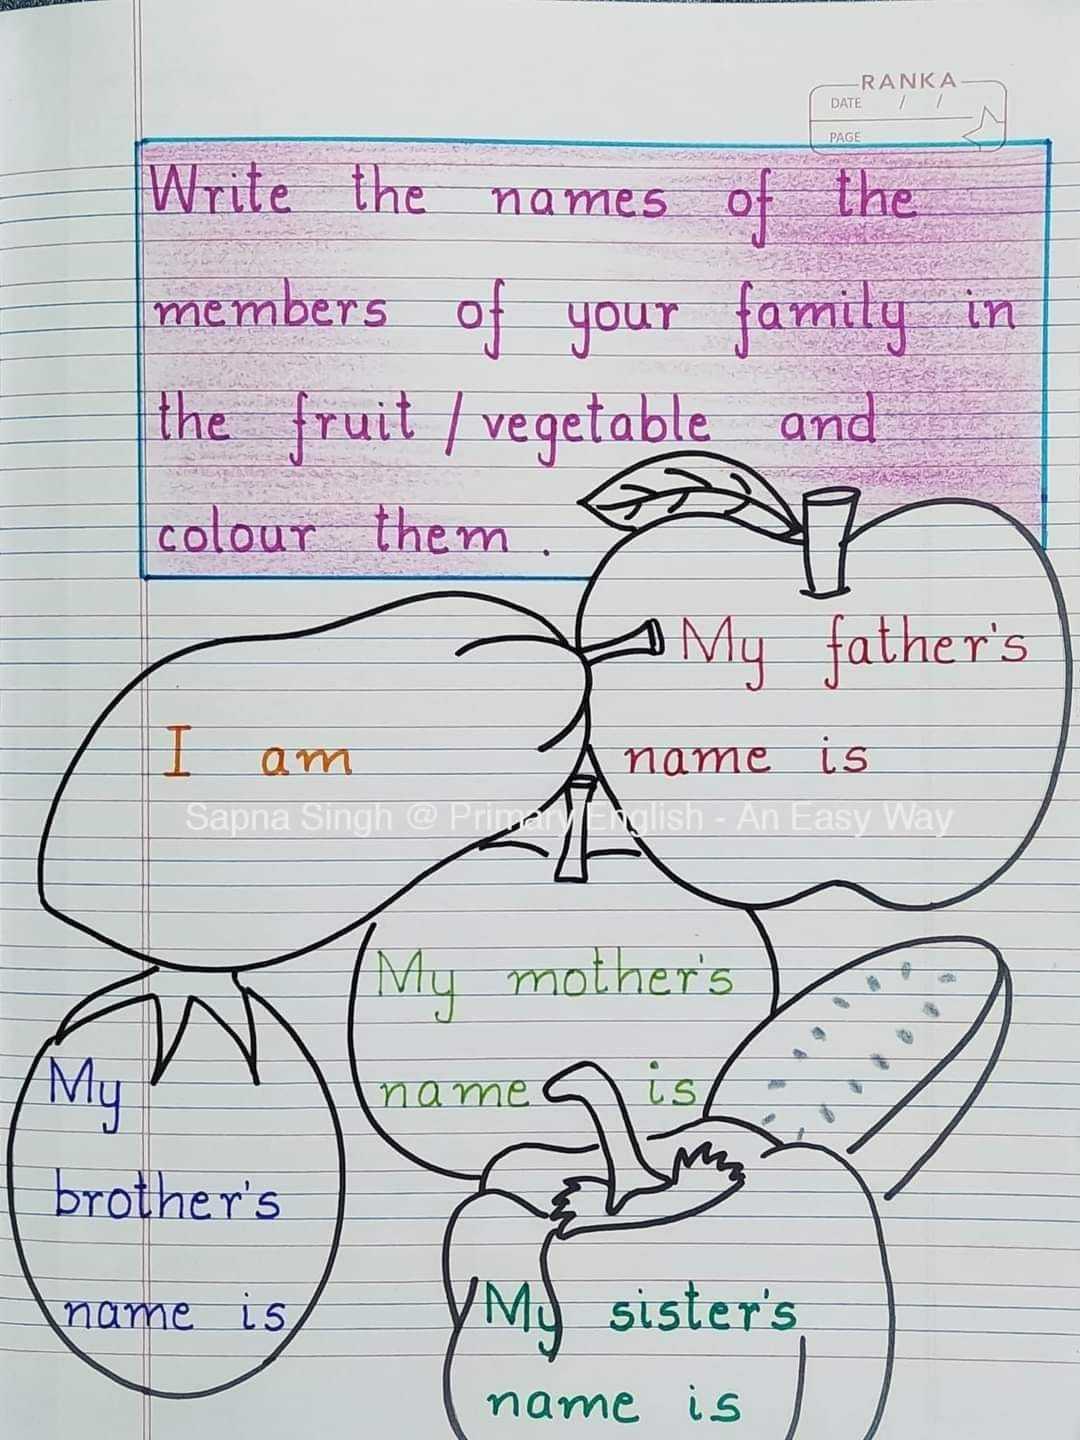 RANKA
DATE / /
PAGE
Write the names of the
members of your family in
the fruit / vegetable and
colour them.
My father's
name is
I am
Sapna Singh @ Primary English - An Easy Way
My mother's
name is
My
brother's
name is
My sister's
name is